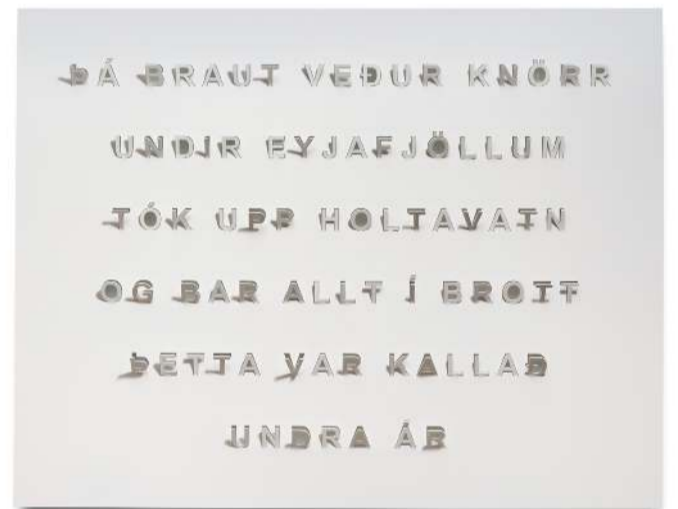 ÞÁ BRAUT VEÐUR KNÖRR
UNDIR EYJAFJÖLLUM
TÓK UPP HOLTAVATN
OG BAR ALLT Í BROTT
ÞETTA VAR KALLAÐ
UNDRA ÁR